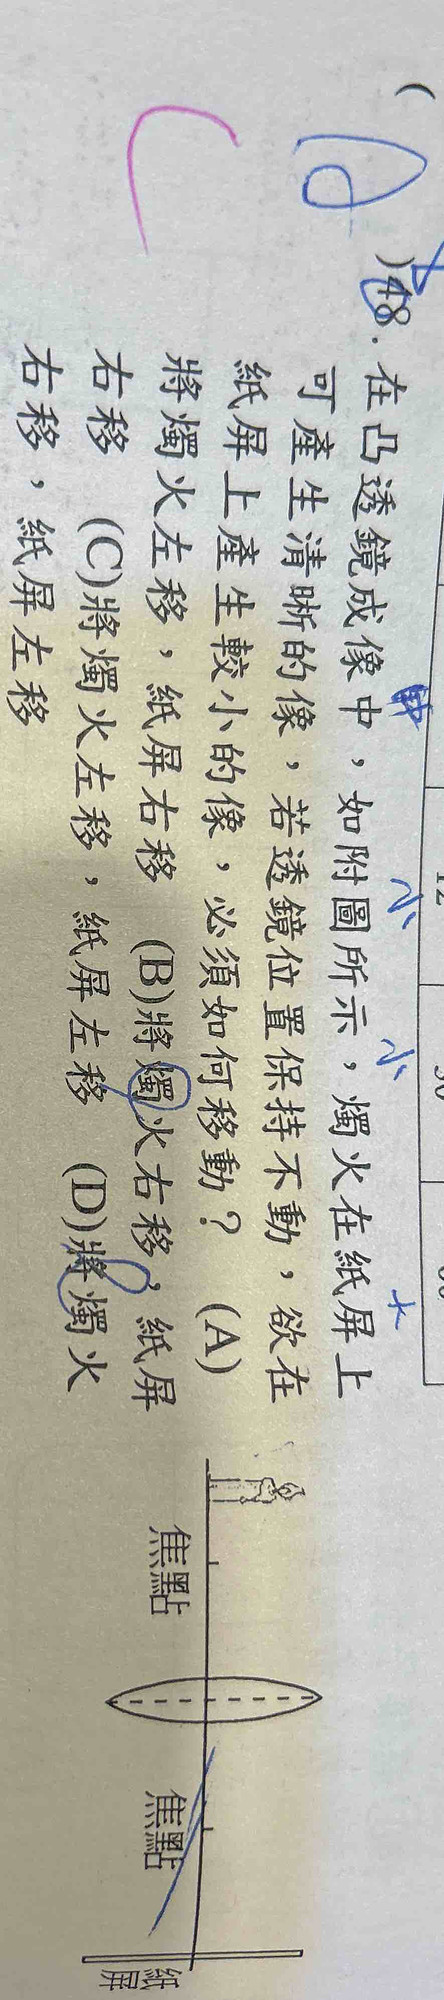 ( )48. 在凸透鏡成像中，如附圖所示，燭火在紙屏上
可產生清晰的像，若透鏡位置保持不動，欲在
紙屏上產生較小的像，必須如何移動？ (A)
將燭火左移，紙屏右移 (B)將燭火右移，紙屏
右移 (C)將燭火左移，紙屏左移 (D)將燭火
右移，紙屏左移
焦點
焦點
紙屏
小
小
大